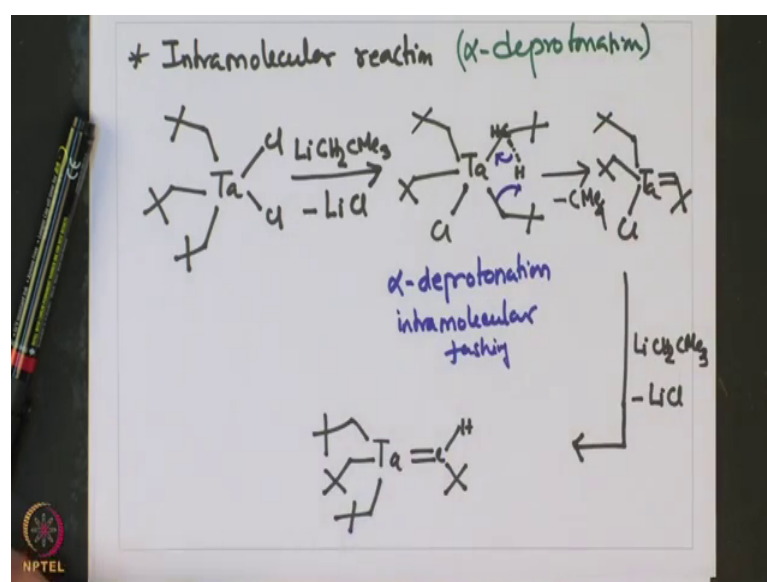 * Intramolecular reaction (α-deprotonation)
Cl
LiCH₂CMe₃
Ta
Cl
- LiCl
HC
Ta
H
Cl
-CMe₄
Ta
Cl
α-deprotonation
intramolecular
fashion
LiCH₂CMe₃
- LiCl
H
Ta
C
NPTEL